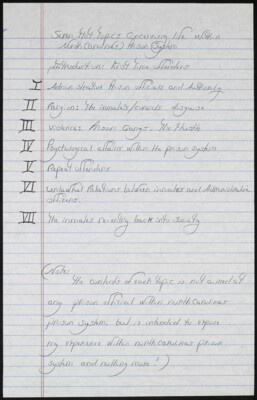 Seven Hot Topics Concerning life within a
North Carolina's Prison System
Introduction: First Time offenders
I Administrative Prison officials and Authority
II Religion: The inmate's/convicts disguise
III Violence: Prison Gangs. The
IV Psychological affairs within the prison system
V Repeat offenders
VI unlawful Relations between inmates and Administrative
officers.
VII The inmates re-entry back into society
(Note:
The contents of each topic is not aimed at
any prison official within north carolinas
prison system, but is intended to expose
my experience within north carolinas prison
system and nothing more!)